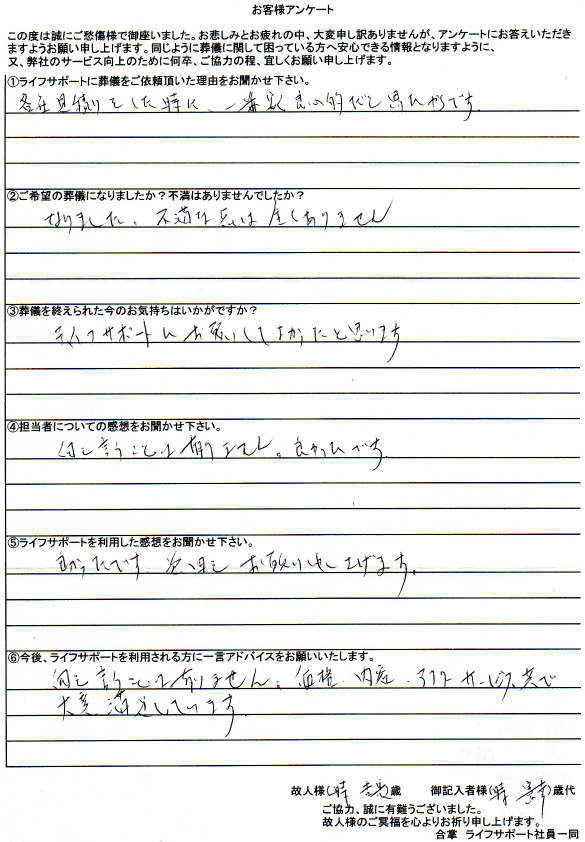 お客様アンケート
この度は誠にご愁傷様で御座いました。お悲しみとお疲れの中、大変申し訳ありませんが、アンケートにお答えいただき
ますようお願い申し上げます。同じように葬儀に関して困っている方へ安心できる情報となりますように、
又、弊社のサービス向上のために何卒、ご協力の程、宜しくお願い申し上げます。
①ライフサポートに葬儀をご依頼頂いた理由をお聞かせ下さい。
各社見積りをした時に、一番良心的だと思ったからです。
②ご希望の葬儀になりましたか?不満はありませんでしたか?
なりました、不満な点は全くありません
③葬儀を終えられた今のお気持ちはいかがですか?
ライフサポートにお願いしてよかったと思います
④担当者についての感想をお聞かせ下さい。
何も言うことは有りません。良かったです。
⑤ライフサポートを利用した感想をお聞かせ下さい。
良かったです、お願い申し上げます。
⑥今後、ライフサポートを利用される方に一言アドバイスをお願いいたします。
何も言うことは有りません。価格、内容、サービス共で
大変満足しています。
故人様( 歳 御記入者様( 歳代
ご協力、誠に有難うございました。
故人様のご冥福を心よりお祈り申し上げます。
合掌 ライフサポート社員一同